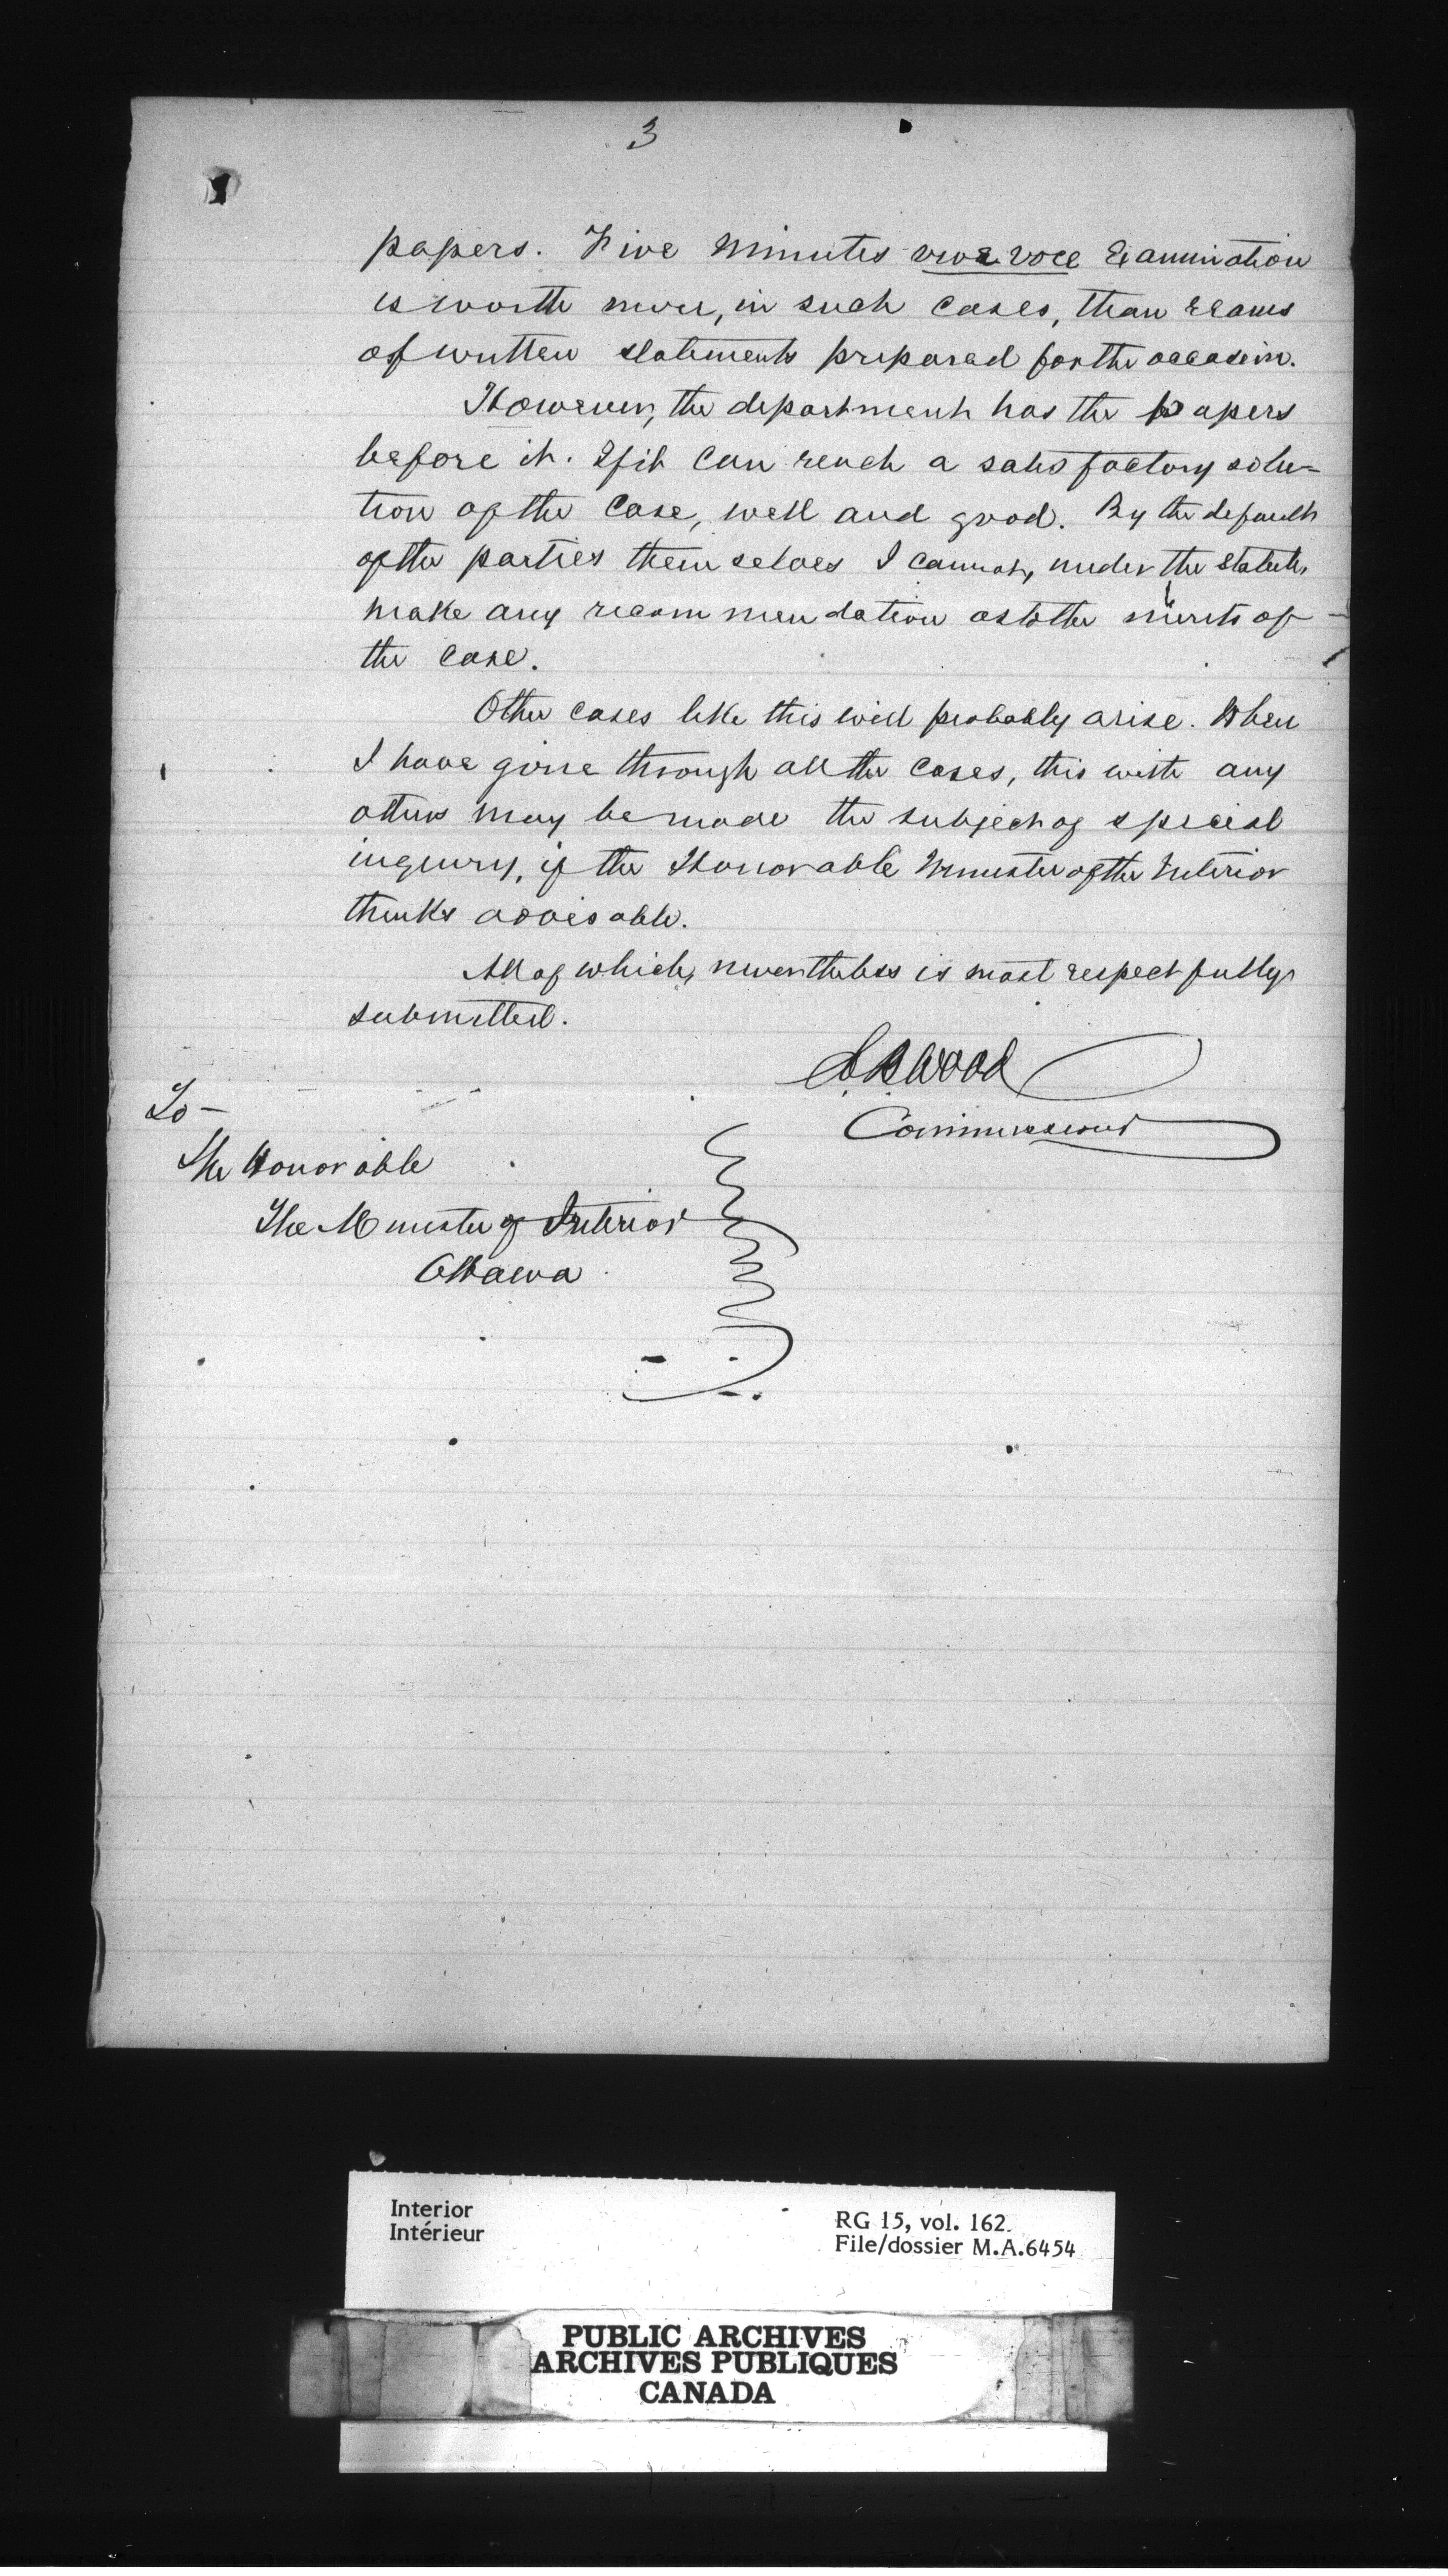 3
papers. Five minutes viva voce Examination
is worth more, in such cases, than reams
of written statements prepared for the occasion.
However, the department has the papers
before it. If it can reach a satisfactory solu=
tion of the case, well and good. By the default
of the parties themselves I cannot, under the statute,
make any recommendation as to the merits of
the case.
Other cases like this will probably arise. When
I have gone through all the cases, this with any
others may be made the subject of special
inquiry, if the Honorable Minister of the Interior
thinks advisable.
All of which, nevertheless is most respectfully
submitted.
Wood
Commissioner
To –
The Honorable
The Minister of Interior
Ottawa
Interior
Intérieur
RG 15, vol. 162.
File/dossier M.A.6454
PUBLIC ARCHIVES
ARCHIVES PUBLIQUES
CANADA